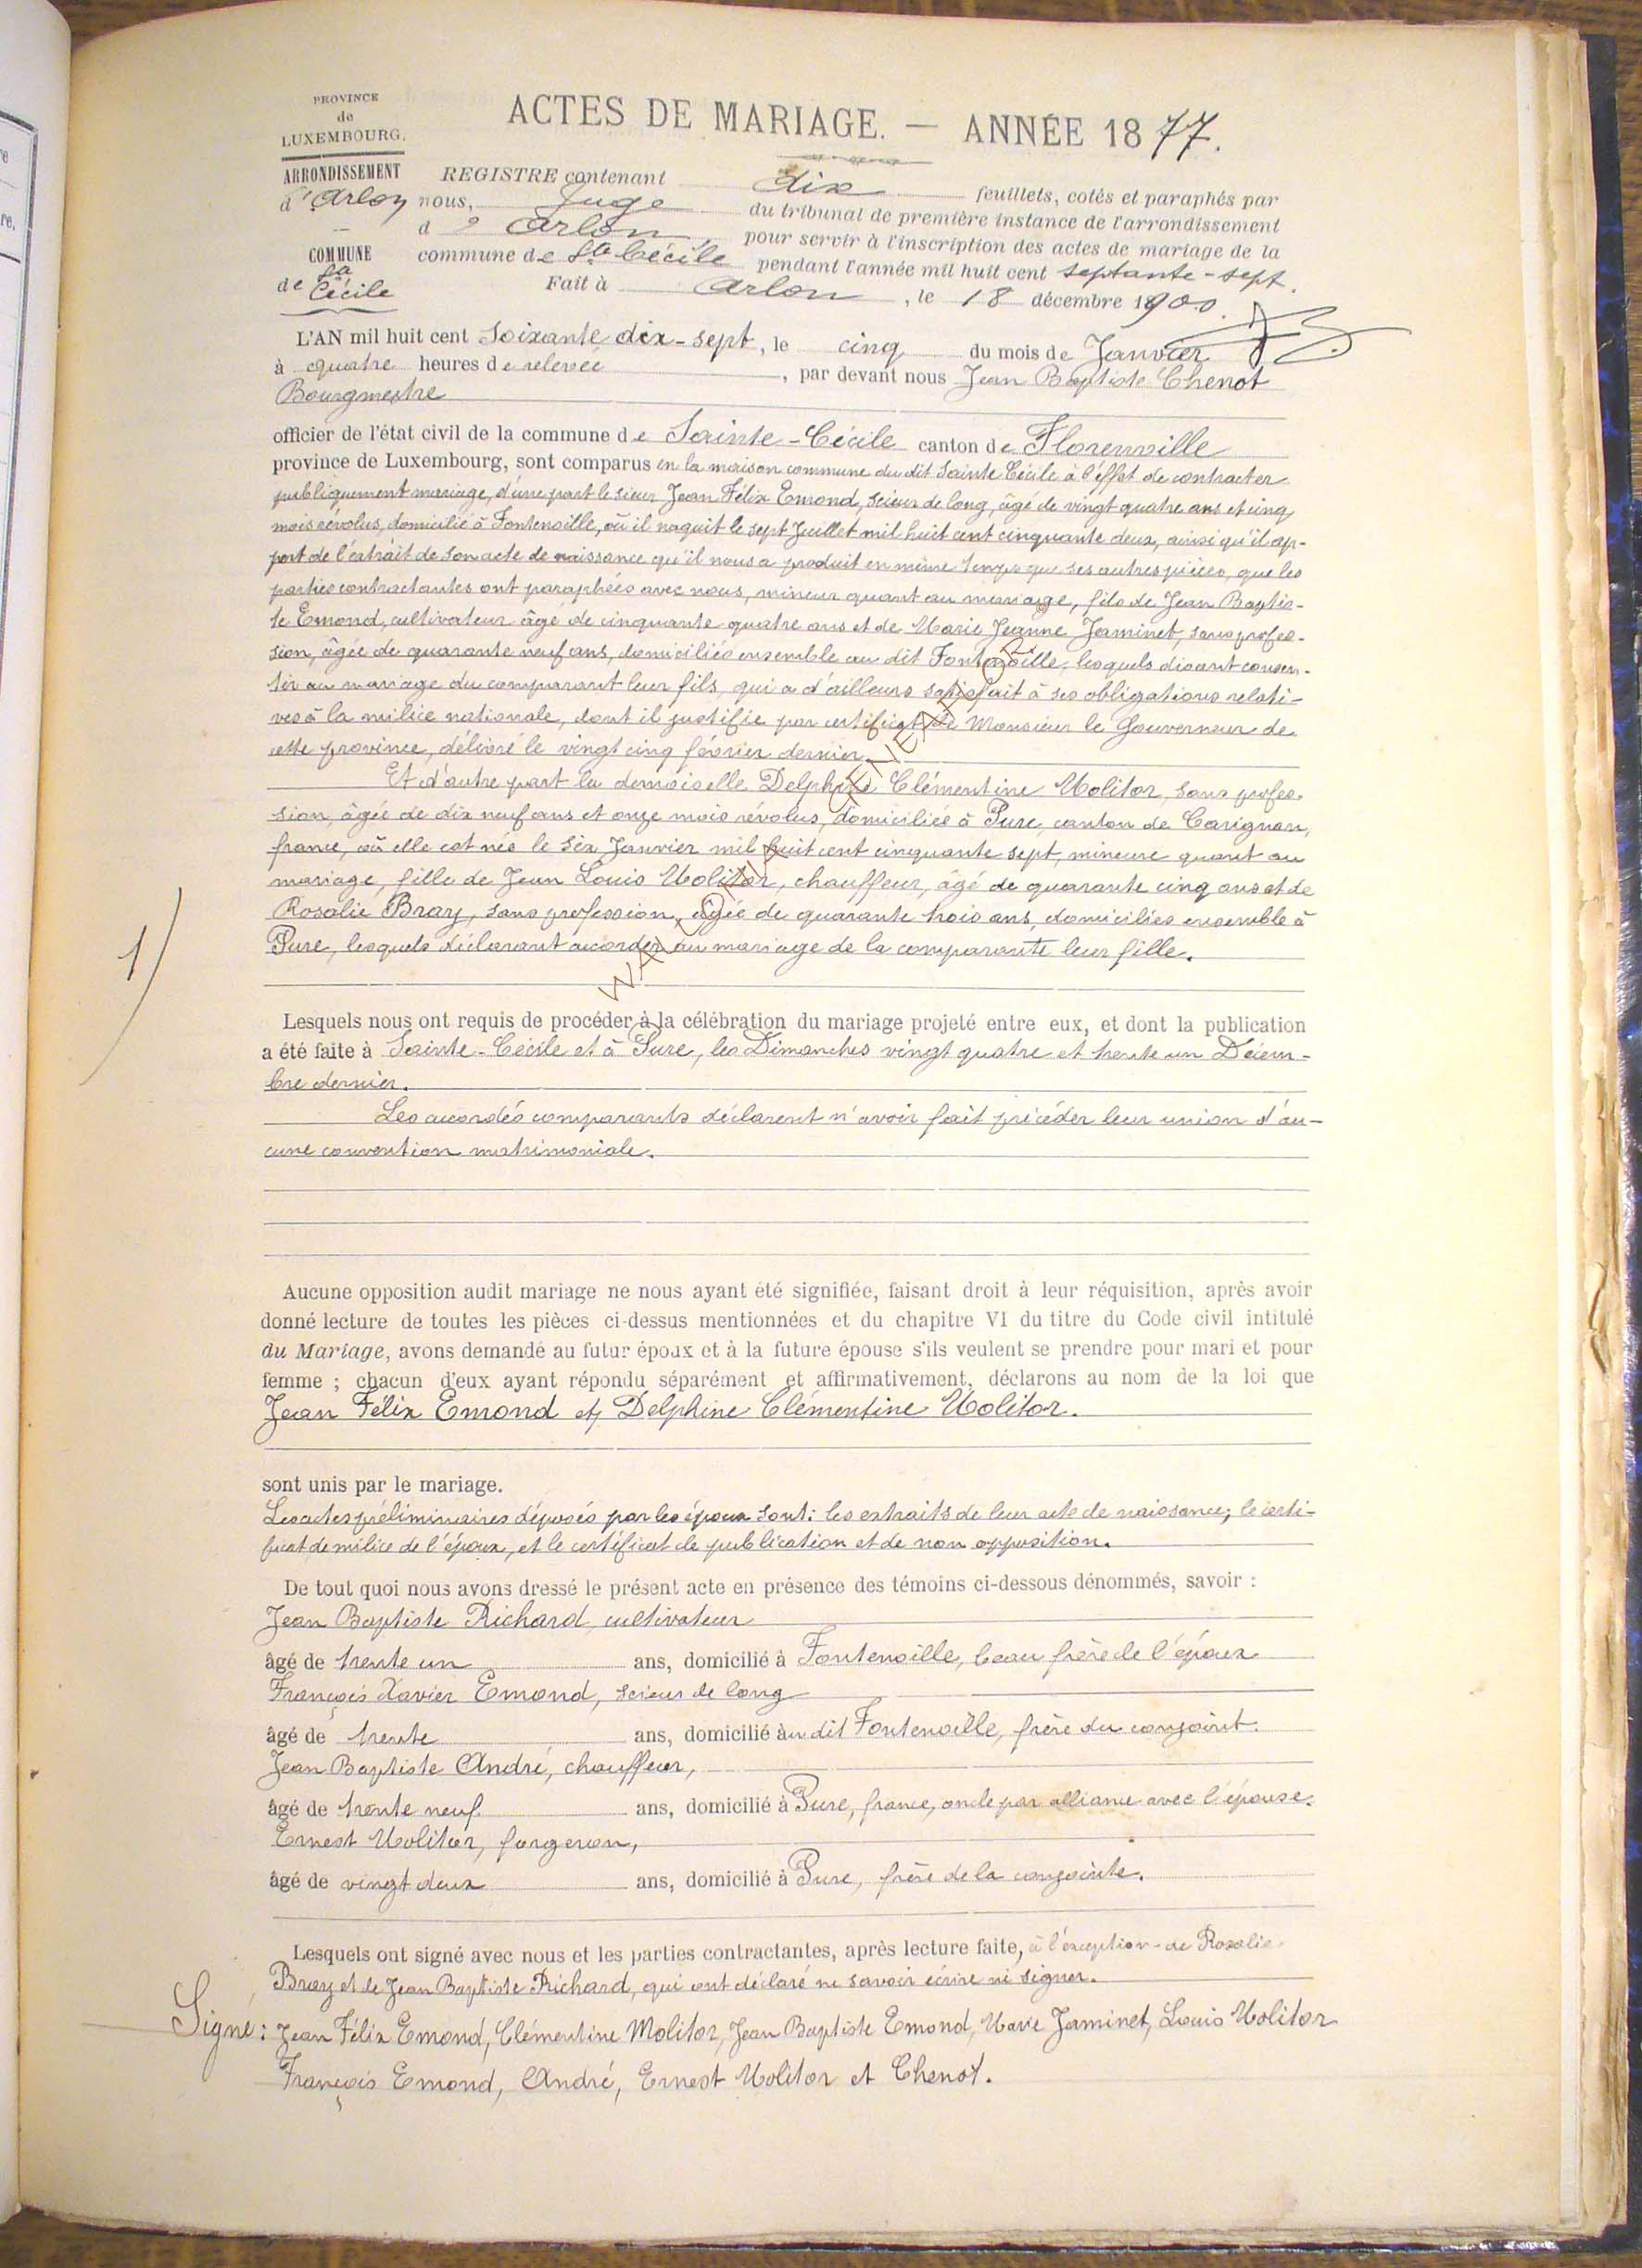 PROVINCE
de
LUXEMBOURG.
ARRONDISSEMENT
d'Arlon
COMMUNE
de Ste
Cécile
ACTES DE MARIAGE. — ANNÉE 1877.
REGISTRE contenant dix feuillets, cotés et paraphés par
nous, Juge du tribunal de première instance de l'arrondissement
d' Arlon, pour servir à l'inscription des actes de mariage de la
commune de Ste Cécile pendant l'année mil huit cent septante-sept.
Fait à Arlon, le 18 décembre 1900.
L'AN mil huit cent Soixante dix-sept, le cinq du mois de Janvier
à quatre heures de relevée, par devant nous Jean Baptiste Chenot
Bourgmestre
officier de l'état civil de la commune de Sainte-Cécile canton de Florenville
province de Luxembourg, sont comparus en la maison commune du dit Sainte Cécile à l'effet de contracter
publiquement mariage, d'une part le sieur Jean Félix Emond, scieur de long, âgé de vingt quatre ans et cinq
mois révolus, domicilié à Fontenoille, où il naquit le sept Juillet mil huit cent cinquante deux, ainsi qu'il ap-
pert de l'extrait de son acte de naissance qu'il nous a produit en même temps que ses autres pièces, que les
parties contractantes ont paraphées avec nous, mineur quant au mariage, fils de Jean Baptis-
te Emond, cultivateur âgé de cinquante quatre ans et de Marie Jeanne Jaminet, sans profes-
sion, âgée de quarante neuf ans, domiciliés ensemble au dit Fontenoille, lesquels disant consen-
tir au mariage du comparant leur fils, qui a d'ailleurs satisfait à ses obligations relati-
ves à la milice nationale, dont il justifie par certificat de Monsieur le Gouverneur de
cette province, délivré le vingt cinq février dernier.
Et d'autre part la demoiselle Delphine Clémentine Molitor, sans profes-
sion, âgée de dix neuf ans et onze mois révolus, domiciliée à Pure, canton de Carignan,
france, où elle est née le six Janvier mil huit cent cinquante sept, mineure quant au
mariage, fille de Jean Louis Molitor, chauffeur, âgé de quarante cinq ans et de
Rosalie Bray, sans profession, âgée de quarante trois ans, domiciliés ensemble à
Pure, lesquels déclarant accorder au mariage de la comparante leur fille.
1/
Lesquels nous ont requis de procéder à la célébration du mariage projeté entre eux, et dont la publication
a été faite à Sainte-Cécile et à Pure, les Dimanches vingt quatre et trente un Décem-
bre dernier.
Les accordés comparants déclarent n'avoir fait précéder leur union d'au-
cune convention matrimoniale.
Aucune opposition audit mariage ne nous ayant été signifiée, faisant droit à leur réquisition, après avoir
donné lecture de toutes les pièces ci-dessus mentionnées et du chapitre VI du titre du Code civil intitulé
du Mariage, avons demandé au futur époux et à la future épouse s'ils veulent se prendre pour mari et pour
femme ; chacun d'eux ayant répondu séparément et affirmativement, déclarons au nom de la loi que
Jean Félix Emond et Delphine Clémentine Molitor.
sont unis par le mariage.
Les actes préliminaires déposés par les époux sont: les extraits de leur acte de naissance; le certi-
ficat de milice de l'époux, et le certificat de publication et de non opposition.
De tout quoi nous avons dressé le présent acte en présence des témoins ci-dessous dénommés, savoir :
Jean Baptiste Richard, cultivateur
âgé de trente un ans, domicilié à Fontenoille, beau frère de l'époux
François Xavier Emond, scieur de long
âgé de trente ans, domicilié au dit Fontenoille, frère du conjoint.
Jean Baptiste André, chauffeur,
âgé de trente neuf ans, domicilié à Pure, france, oncle par alliance avec l'épouse.
Ernest Molitor, forgeron,
âgé de vingt deux ans, domicilié à Pure, frère de la conjointe.
Lesquels ont signé avec nous et les parties contractantes, après lecture faite, à l'exception de Rosalie
Bray et de Jean Baptiste Richard, qui ont déclaré ne savoir écrire ni signer.
Signé: Jean Félix Emond, Clémentine Molitor, Jean Baptiste Emond, Marie Jaminet, Louis Molitor
François Emond, André, Ernest Molitor et Chenot.